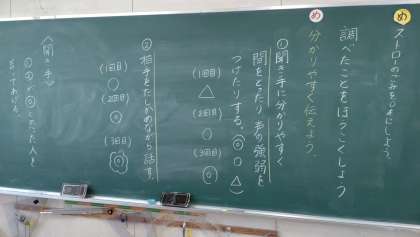 め
ストローのごみを0にしよう。
調べたことをほうこくしよう
め
分かりやすく伝えよう。
①聞き手に分かりやすく
間をとったり声の強弱を
つけたりする。(◎○△)
(1回目)
△
(2回目)
○
(3回目)
◎
②相手をたしかめながら話す。
(1回目)
○
(2回目)
◎
(3回目)
◎
〈聞き手〉
①②が◎だった人を